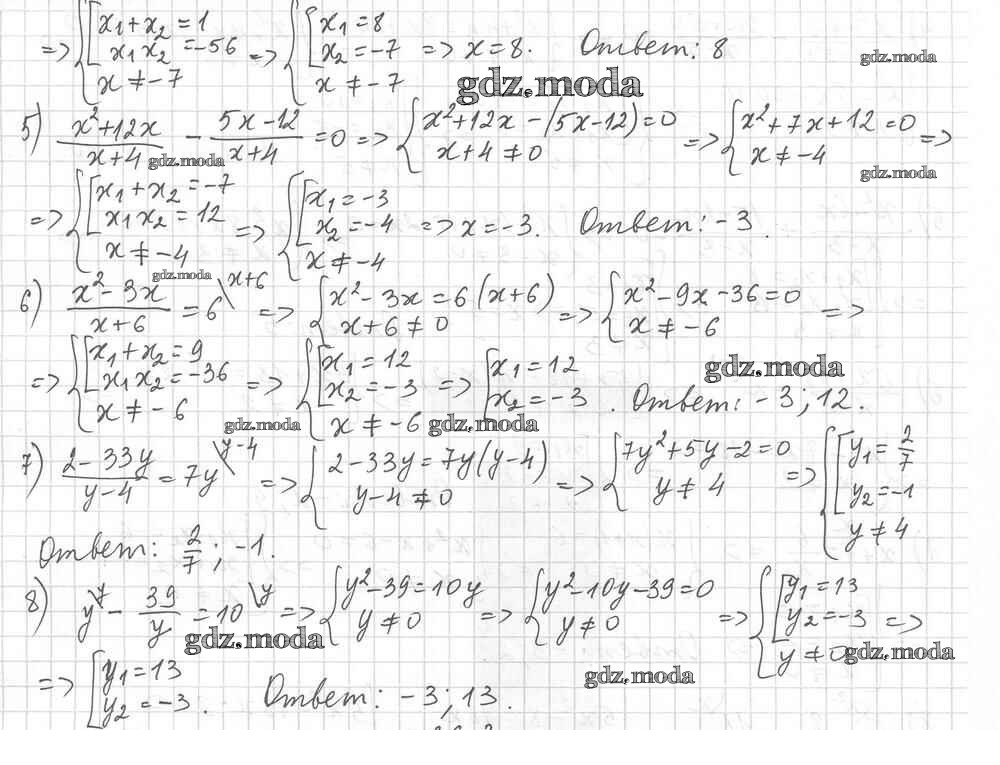 => {[x₁+x₂=1
x₁x₂=-56
x≠-7 => {[x₁=8
x₂=-7
x≠-7 => x=8. Ответ: 8
gdz.moda
gdz.moda
5) (x²+12x)/(x+4) - (5x-12)/(x+4) =0 => {x²+12x-(5x-12)=0
x+4≠0 => {x²+7x+12=0
x≠-4 =>
gdz.moda
gdz.moda
=> {[x₁+x₂=-7
x₁x₂=12
x≠-4 => {[x₁=-3
x₂=-4
x≠-4 => x=-3. Ответ: -3.
gdz.moda
6) (x²-3x)/(x+6) =6\x+6 => {x²-3x=6(x+6)
x+6≠0 => {x²-9x-36=0
x≠-6 =>
=> {[x₁+x₂=9
x₁x₂=-36
x≠-6 => {[x₁=12
x₂=-3
x≠-6 => [x₁=12
x₂=-3. Ответ: -3; 12.
gdz.moda
gdz.moda
gdz.moda
7) (2-33y)/(y-4) =7y\y-4 => {2-33y=7y(y-4)
y-4≠0 => {7y²+5y-2=0
y≠4 => {[y₁=2/7
y₂=-1
y≠4
Ответ: 2/7; -1.
8) y\y - 39/y =10\y => {y²-39=10y
y≠0 => {y²-10y-39=0
y≠0 => {[y₁=13
y₂=-3
y≠0 =>
gdz.moda
gdz.moda
=> [y₁=13
y₂=-3. Ответ: -3; 13.
gdz.moda